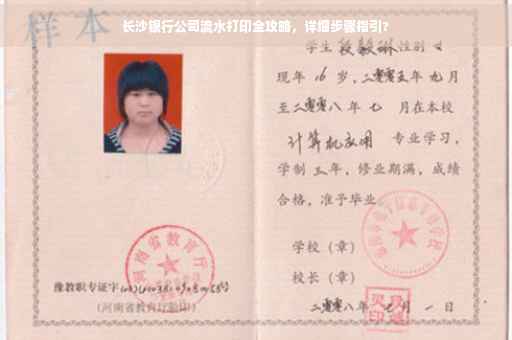 长沙银行公司流水打印全攻略，详细步骤指引?
样本
学生 段毅琳 性别 女
现年 16 岁，二零零五年 九月
至二零零八年 七 月在本校
计算机应用 专业学习，
学制 三 年，修业期满，成绩
合格，准予毕业。
学校（章）
校长（章）
二零零八年 七 月 一 日
河南省教育厅
豫教职专证字
（河南省教育厅验印）